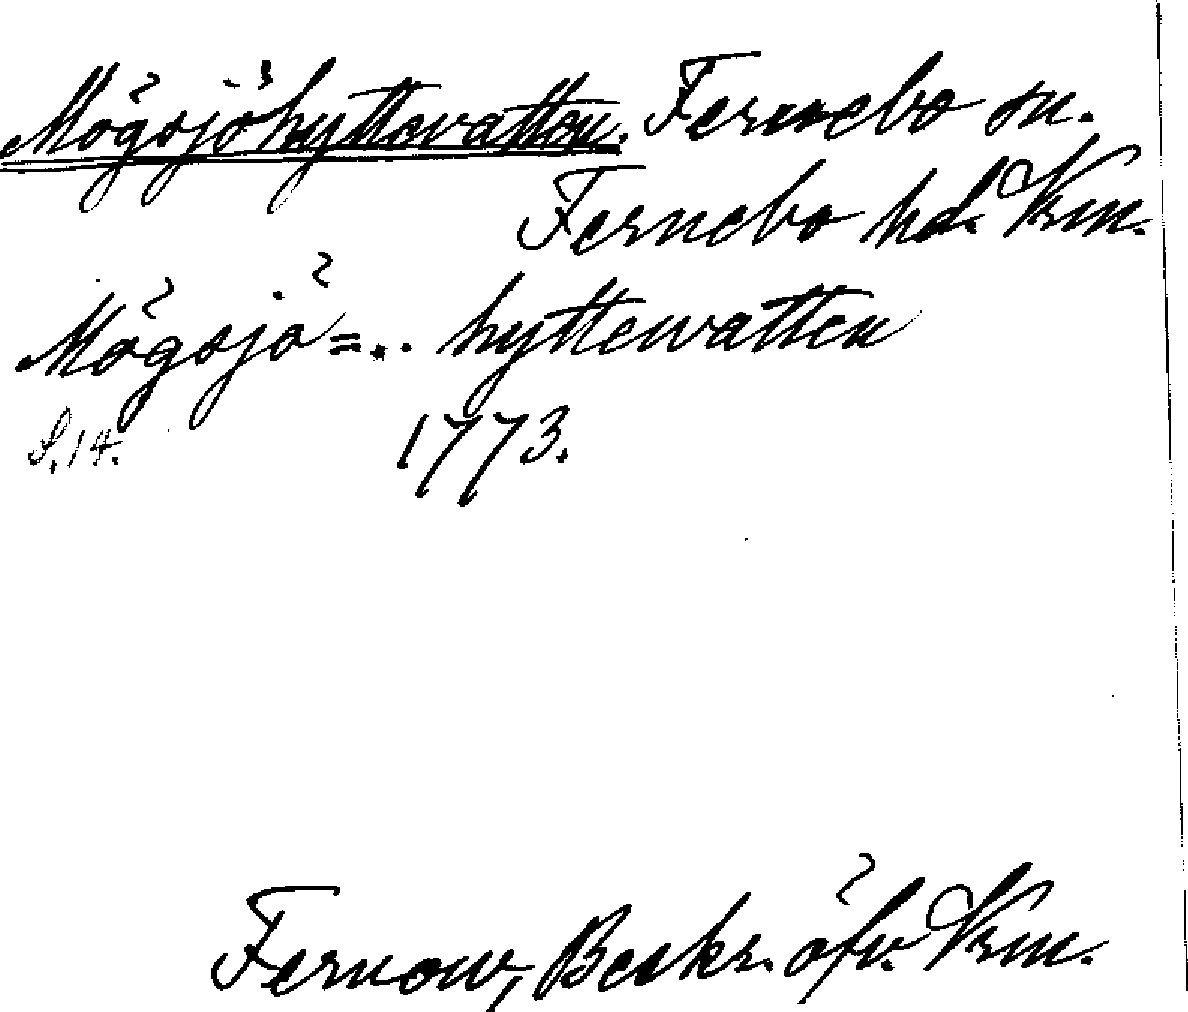 Mögsjöhyttevatten. Fernebo sn.
Fernebo hd. Vrm.
Mögsjö=.. hyttewatten
S. 14. 1773.
Fernow, Beskr. öfv. Vrm.